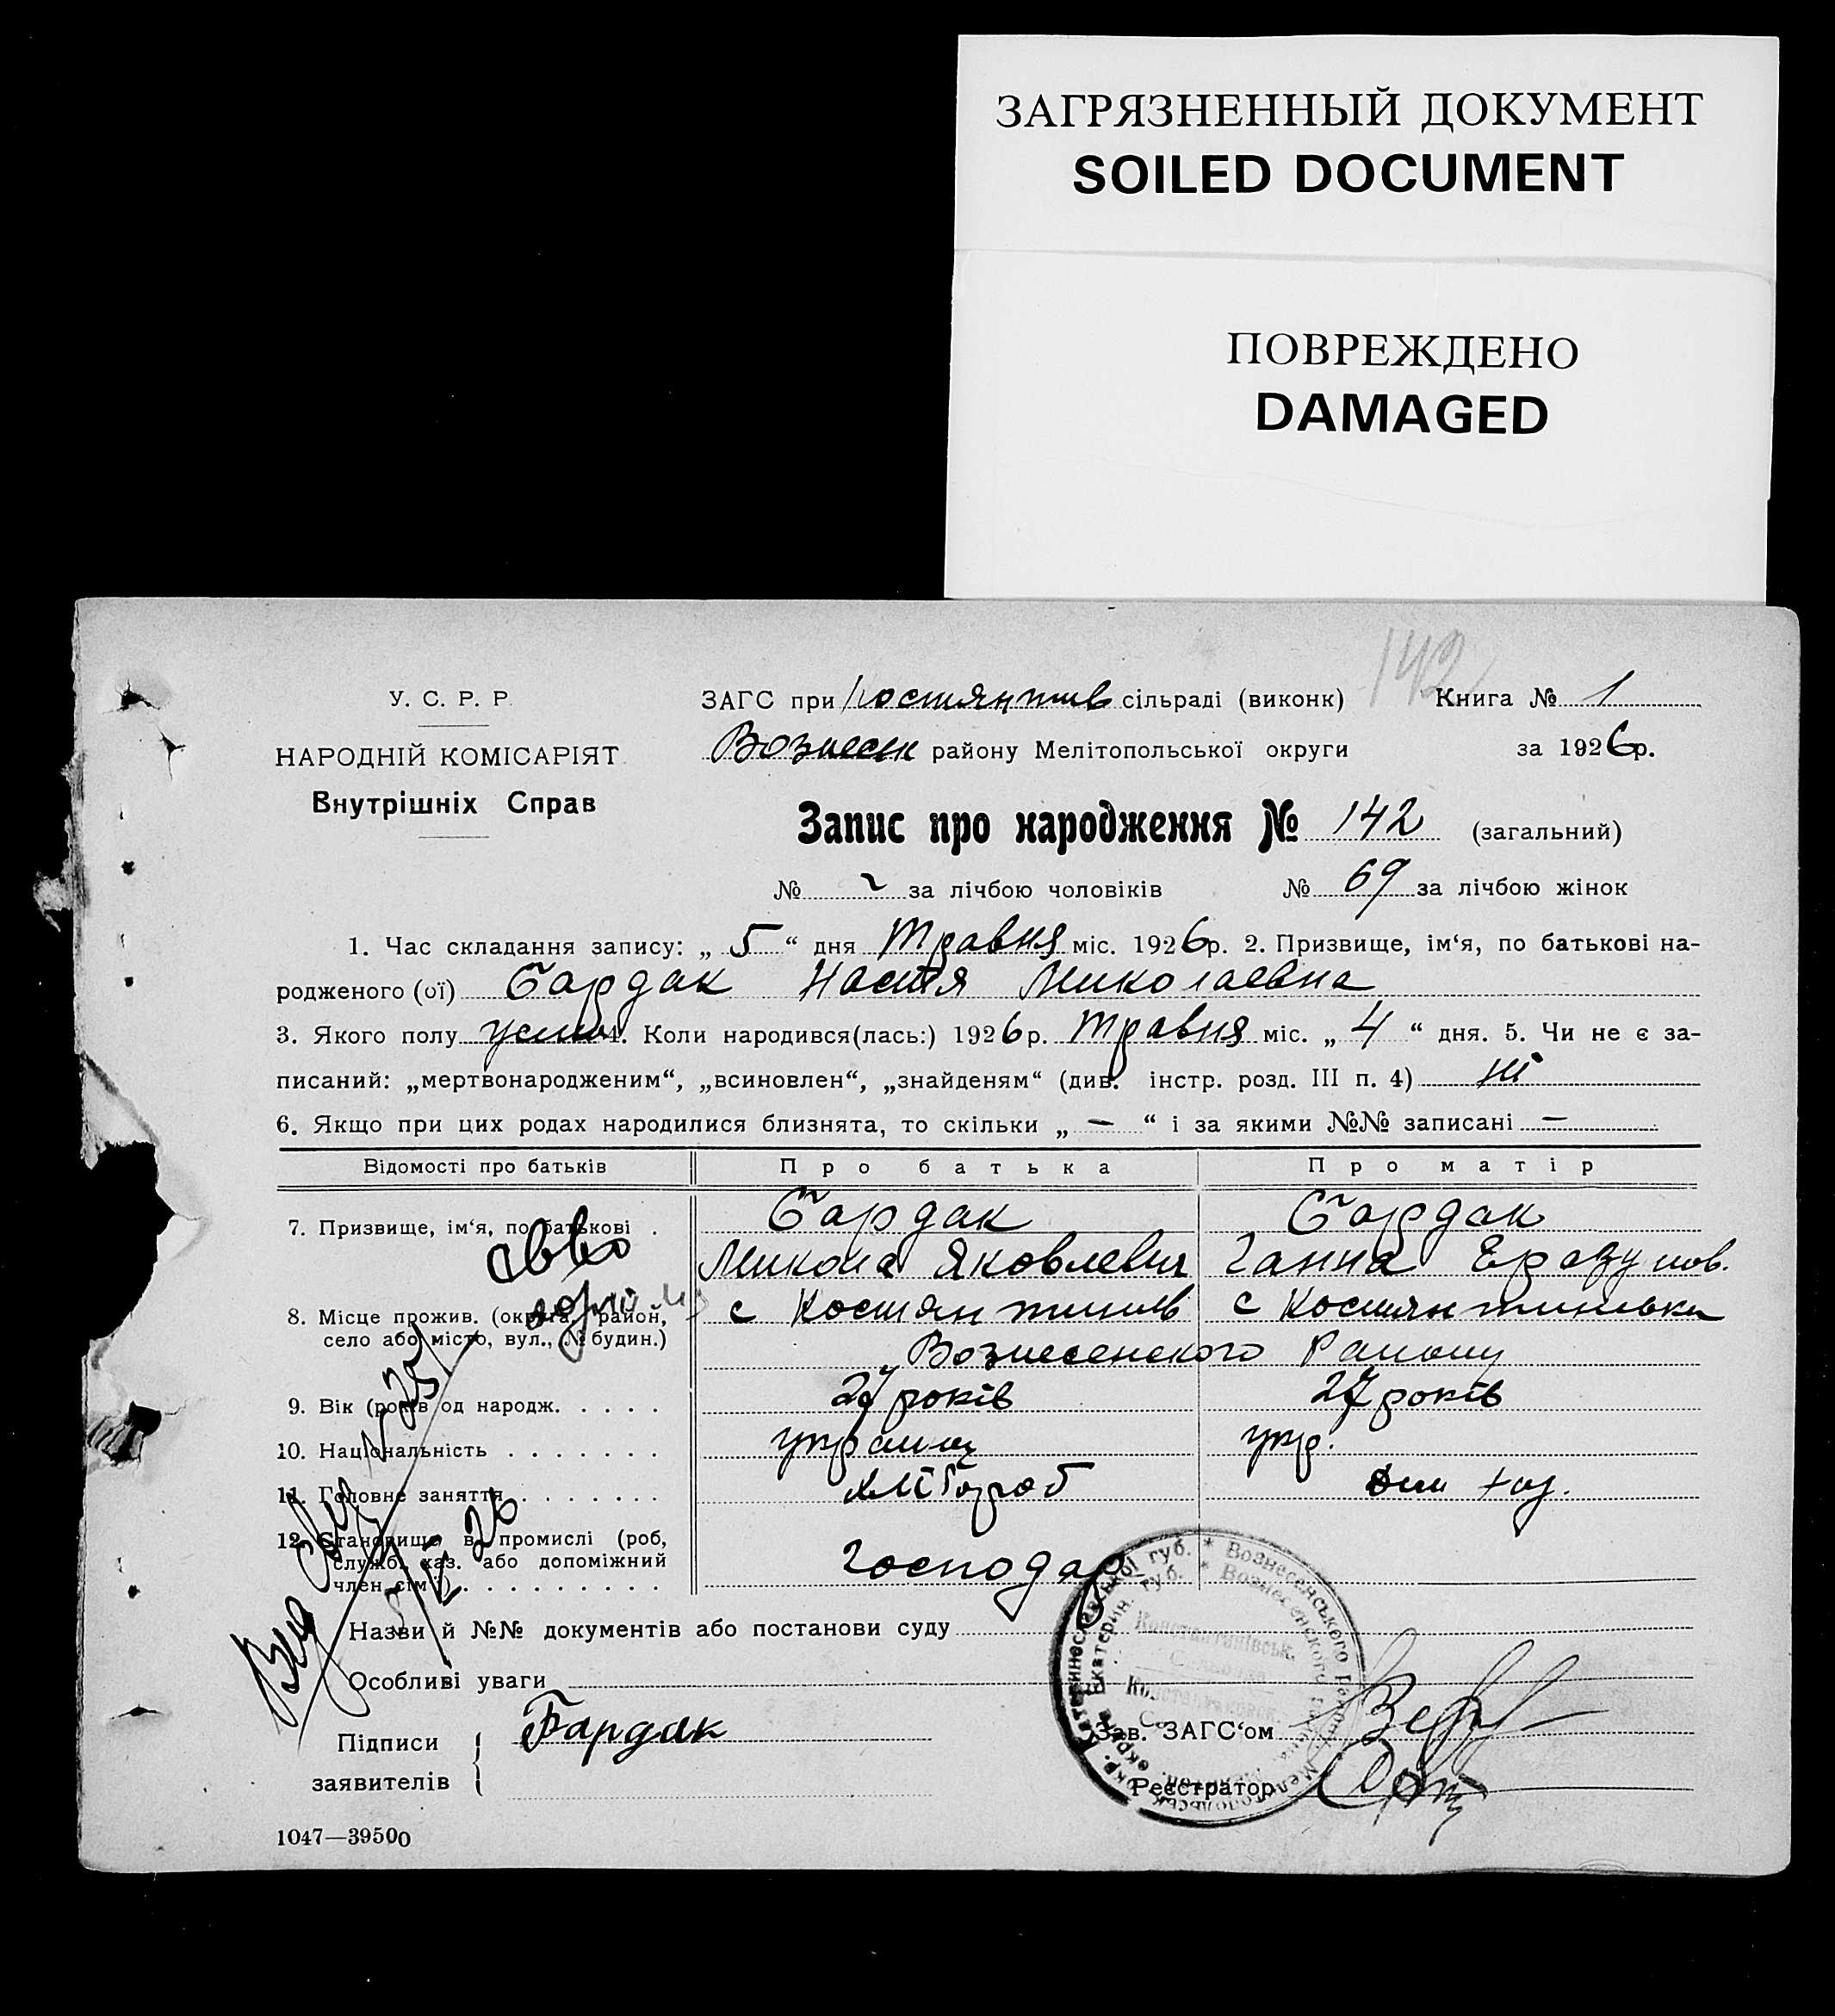 ЗАГРЯЗНЕННЫЙ ДОКУМЕНТ
SOILED DOCUMENT
ПОВРЕЖДЕНО
DAMAGED
142
У. С. Р. Р.
НАРОДНІЙ КОМІСАРІЯТ
Внутрішніх Справ
ЗАГС при Костянтив сільраді (виконк) Книга № 1
Вознесен району Мелітопольської округи за 1926р.
Запис про народження № 142 (загальний)
№ за лічбою чоловіків № 69 за лічбою жінок
1. Час складання запису: „ 5 “ дня Травня міс. 1926р. 2. Призвище, ім‘я, по батькові на-
родженого (ої) Бардак Настя Миколаевна
3. Якого полу 4. Коли народився(лась:) 1926р. Травня міс. „ 4 “ дня. 5. Чи не є за-
писаний: „мертвонародженим“, „всиновлен“, „знайденям“ (див. інстр. розд. III п. 4) ні
6. Якщо при цих родах народилися близнята, то скільки „ — “ і за якими №№ записані —
Відомості про батьків Про батька Про матір
7. Призвище, ім‘я, по батькові . Бардак Бардак
Микола Яковлевич Ганна
8. Місце прожив. (округа, район, с Костянтинів с Костянтинівка
село або місто, вул., № будин.) Вознесенского Району
9. Вік (років од народж. . . . . 27 років 27 років
10. Національність . . . . . . . україн укр.
11. Головне заняття . . . . . . . хлібороб
12. Становище в промислі (роб,
службі. хаз. або допоміжний Господар
член сім‘ї) . . . . . . . . . .
Назви й №№ документів або постанови суду
Особливі уваги
Підписи Бардак
заявителів
Зав. ЗАГС‘ом
Реєстратор
1047—39500